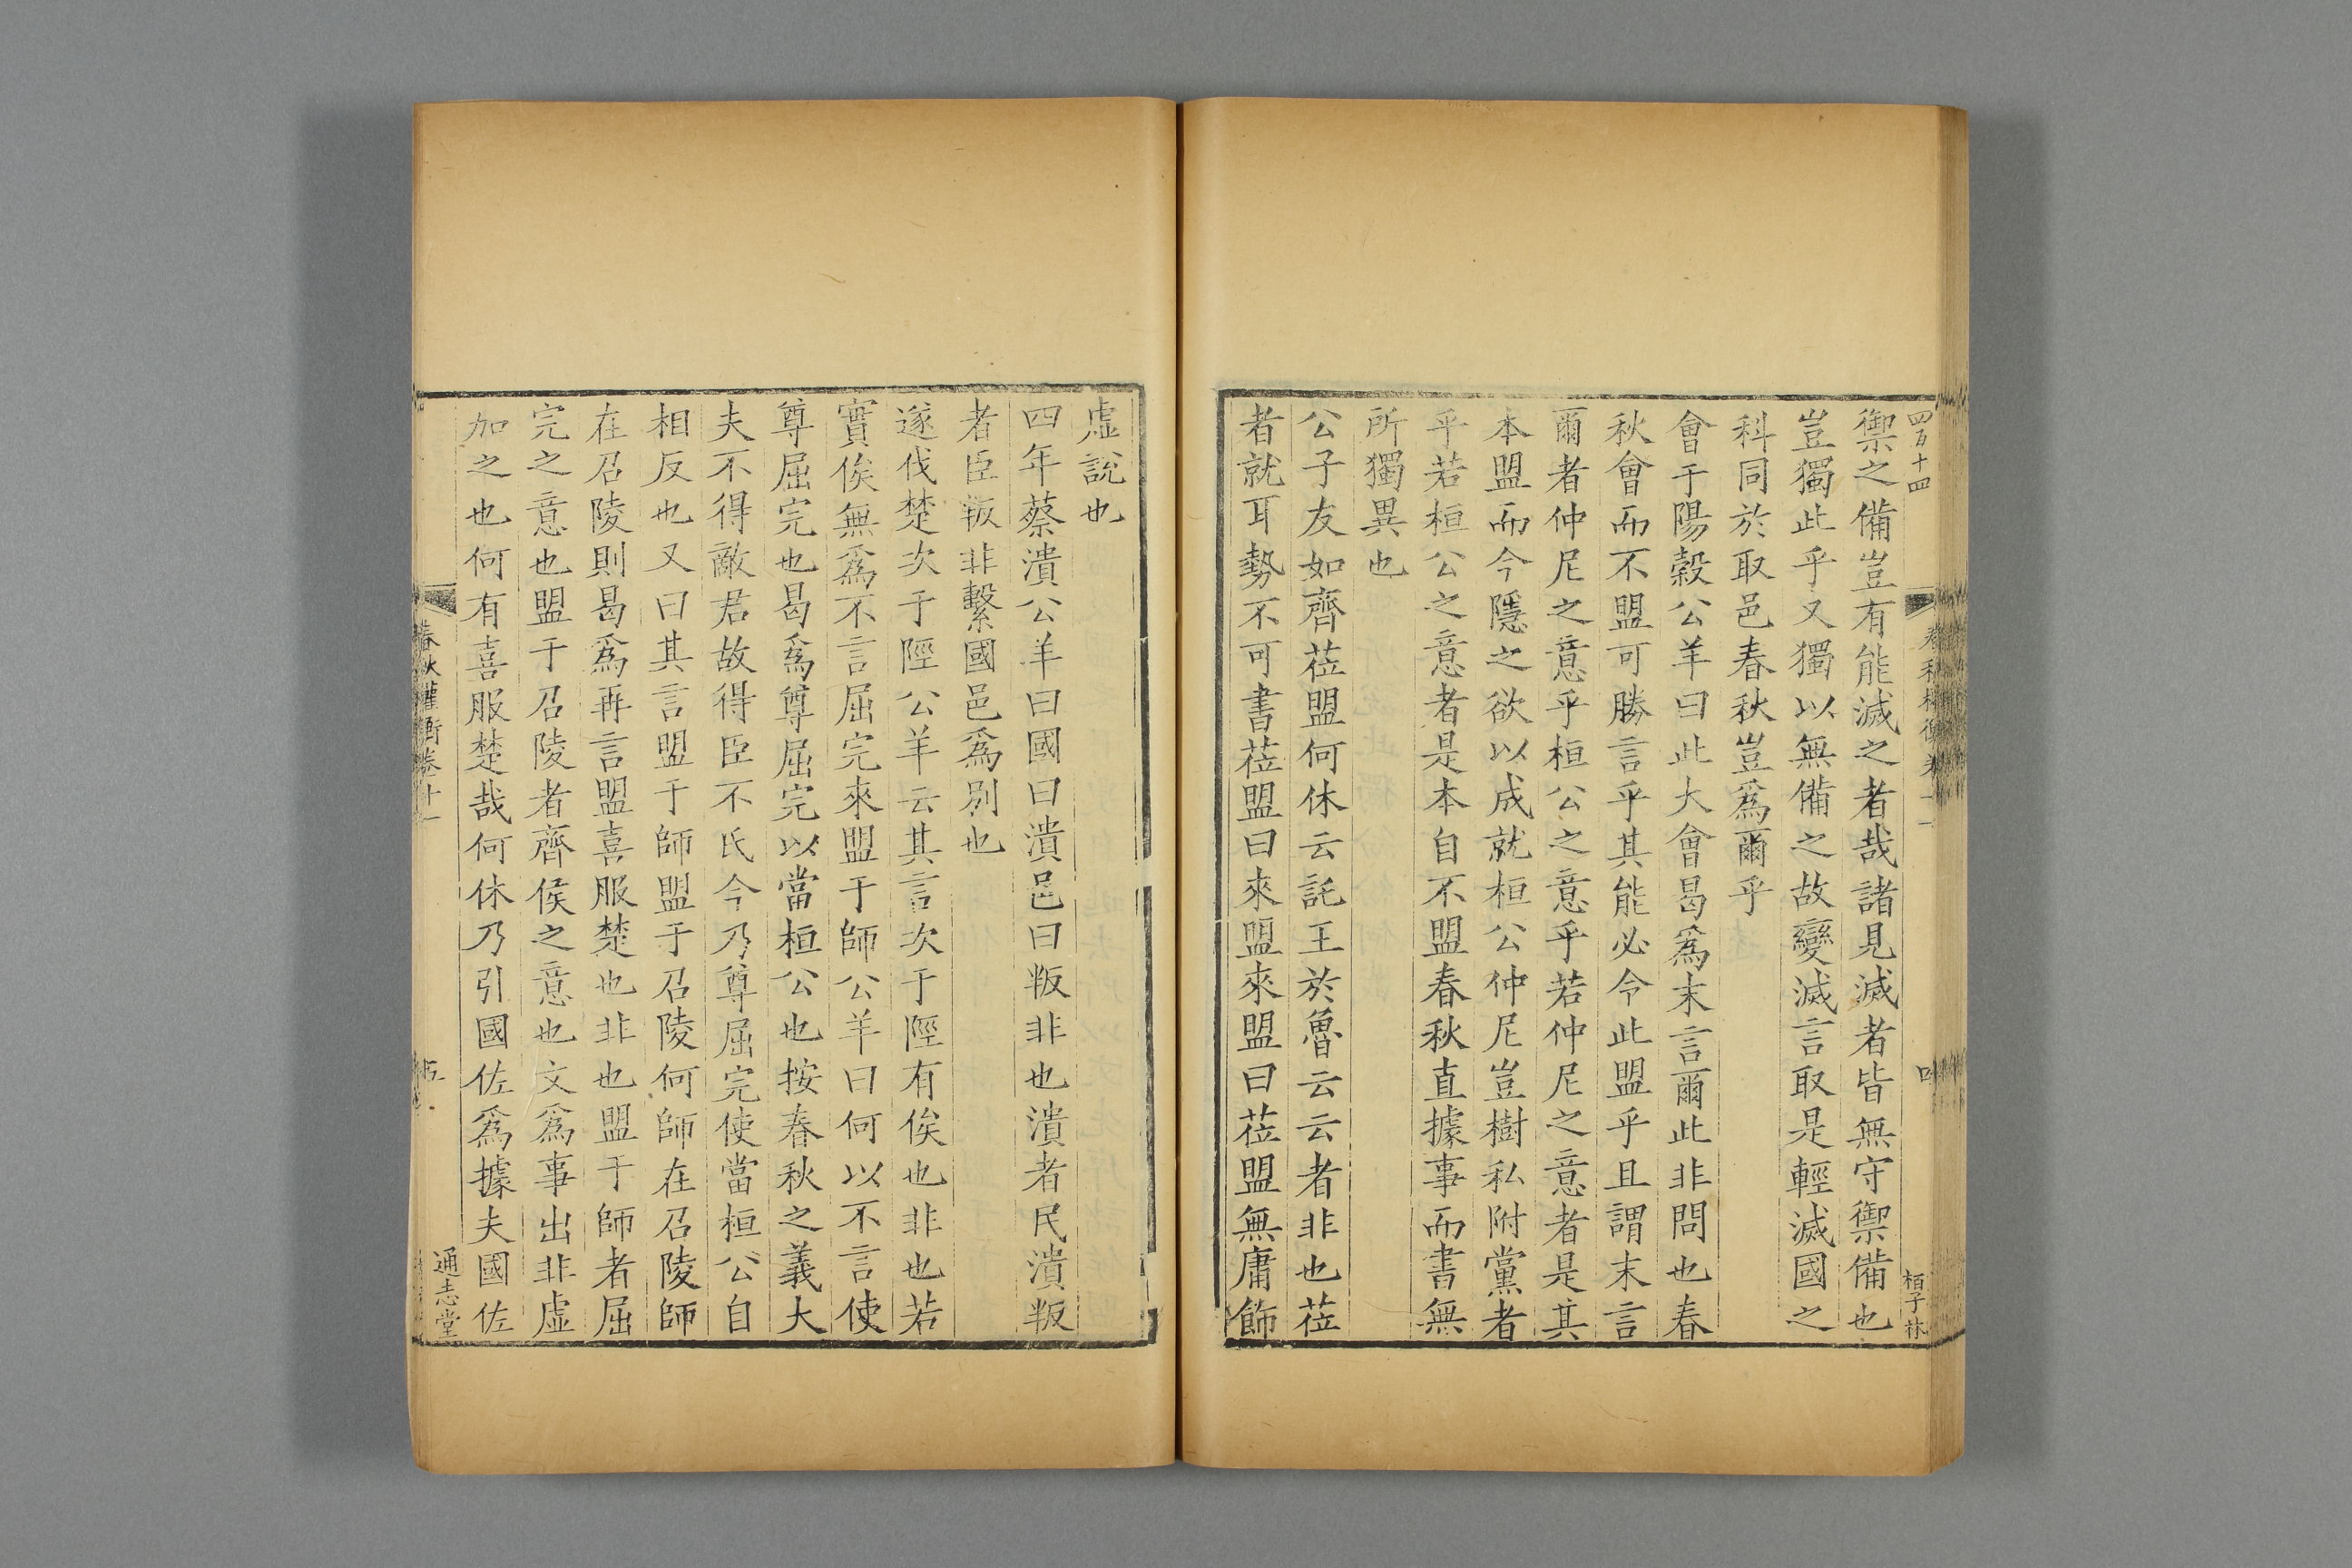 四百十四
春秋權衡卷十一
四
栢子林
禦之備豈有能滅之者哉諸見滅者皆無守禦備也
豈獨此乎又獨以無備之故變滅言取是輕滅國之
科同於取邑春秋豈爲爾乎
會于陽穀公羊曰此大會曷爲末言爾此非問也春
秋會而不盟可勝言乎其能必令此盟乎且謂末言
爾者仲尼之意乎桓公之意乎若仲尼之意者是其
本盟而今隱之欲以成就桓公仲尼豈樹私附黨者
乎若桓公之意者是本自不盟春秋直據事而書無
所獨異也
公子友如齊莅盟何休云託王於魯云云者非也莅
者就耳勢不可書莅盟曰來盟來盟曰莅盟無庸飾
虛說也
四年蔡潰公羊曰國曰潰邑曰叛非也潰者民潰叛
者臣叛非繫國邑爲別也
遂伐楚次于陘公羊云其言次于陘有俟也非也若
實俟無爲不言屈完來盟于師公羊曰何以不言使
尊屈完也曷爲尊屈完以當桓公也按春秋之義大
夫不得敵君故得臣不氏今乃尊屈完使當桓公自
相反也又曰其言盟于師盟于召陵何師在召陵師
在召陵則曷爲再言盟喜服楚也非也盟于師者屈
完之意也盟于召陵者齊侯之意也文爲事出非虛
加之也何有喜服楚哉何休乃引國佐爲據夫國佐
春秋權衡卷十一
五
通志堂